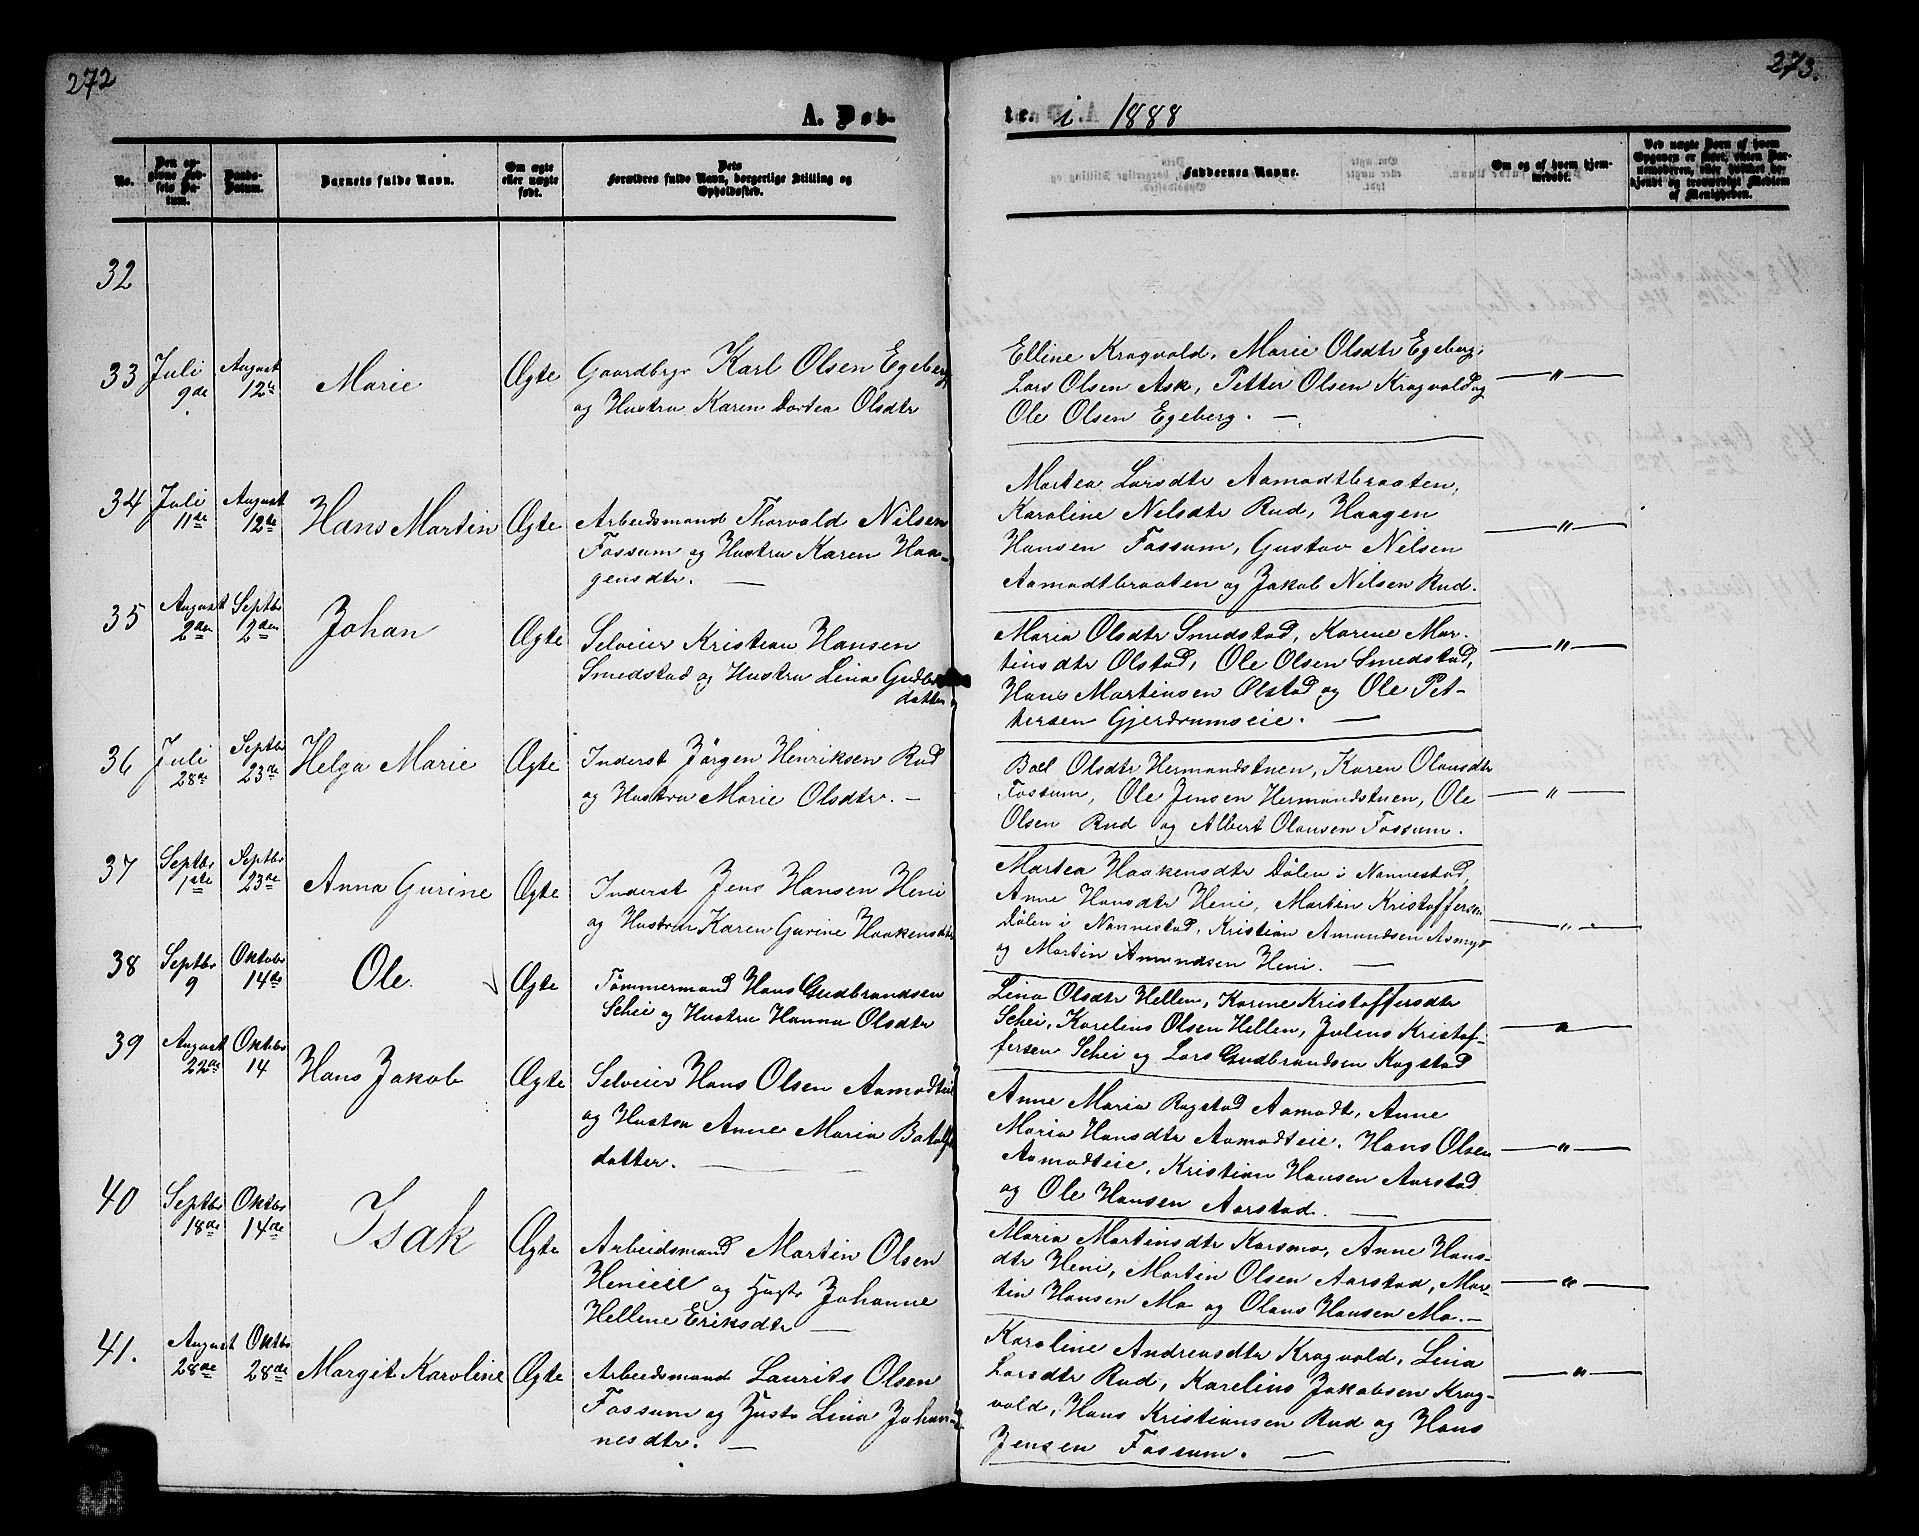 272
273.
A. Døb-
te. i 1888
No.
Den op-
givne Fød-
sels Da-
tum.
Daabs-
Datum.
Barnets fulde Navn.
Om ægte
eller uægte
født.
Dets
Forældres fulde Navn, borgerlige Stilling og
Opholdssted.
Faddernes Navne.
Om og af hvem hjem-
medøbt.
Ved uægte Børn af hvem
Opgaven er skeet, uden Bar-
nemoderen, eller tvende be-
kjendt og troværdige Medlem
af Menigheden.
32
33 Juli 9de August 12te Marie Ægte
Gaardbrgr Karl Olsen Egeberg
og Hustru Karen Dortea Olsdtr
Elline Kragvold, Marie Olsdtr Egeberg,
Lars Olsen Ask, Petter Olsen Kragvold og
Ole Olsen Egeberg. —
— " —
34 Juli 11te August 12te Hans Martin Ægte
Arbeidsmand Thorvald Nilsen
Fossum og Hustru Karen Haa-
gensdtr. —
Martea Larsdtr Aamodtbraaten,
Karoline Nelsdtr Rud, Haagen
Hansen Fossum, Gustav Nilsen
Aamodtbraaten og Jakob Nilsen Rud.
— " —
35 August 2den Septbr 2den Johan Ægte
Selveier Kristian Hansen
Smedstad og Hustru Lina Gudbr
datter
Maria Olsdtr Smedstad, Karene Mar-
tinsdtr Olstad, Ole Olsen Smedstad,
Hans Martinsen Olstad og Ole Pet-
tersen Gjerdrumseie. —
— " —
36 Juli 28de Septbr 23de Helga Marie Ægte
Inderst Jørgen Henriksen Rud
og Hustru Marie Olsdtr. —
Boel Olsdtr Hermandstuen, Karen Olausdtr
Fossum, Ole Jensen Hermandstuen, Ole
Olsen Rud og Albert Olausen Fossum.
— " —
37 Septbr 1ste Septbr 23de Anna Gurine Ægte
Inderst Jens Hansen Heni
og Hustru Karen Gurine Haakensdtr
Martea Haakensdtr Dølen i Nannestad,
Anne Hansdtr Heni, Martin Kristoffersen
Dølen i Nannestad, Kristian Amundsen Asmyr
og Martin Amundsen Heni. —
— " —
38 Septbr 9 Oktobr 14de Ole. Ægte
Tømmermand Hans Gudbrandsen
Schei og Hustru Hanna Olsdtr
Lina Olsdtr Hellen, Karine Kristoffersdtr
Schei, Karelius Olsen Hellen, Julius Kristof-
fersen Schei og Lars Gudbrandsen Kogstad
— " —
39 August 22de Oktbr 14 Hans Jakob Ægte
Selveier Hans Olsen Aamodteie
og Hustru Anne Maria Botolfs
datter. —
Anne Maria Rogstad Aamodt, Anne
Maria Hansdtr Aamodteie, Hans Olsen
Aamodteie, Kristian Hansen Aarstad
og Ole Hansen Aarstad. —
— " —
40 Septbr 18de Oktbr 14de Isak Ægte
Arbeidsmand Martin Olsen
Henieie og Hust Johanne
Hellene Eriksdtr —
Maria Martinsdtr Karsmo, Anne Hans-
dtr Heni, Martin Olsen Aarstad, Mar-
tin Hansen Mo og Olaus Hansen Mo. —
— " —
41. August 28de Oktbr 28de Margit Karoline Ægte
Arbeidsmand Laurits Olsen
Fossum og Hustr Lina Johan-
nesdtr. —
Karoline Andreasdtr Kragvold, Lina
Larsdtr Rud, Karelius Jakobsen Krag-
vold, Hans Kristiansen Rud og Hans
Jensen Fossum. —
— " —